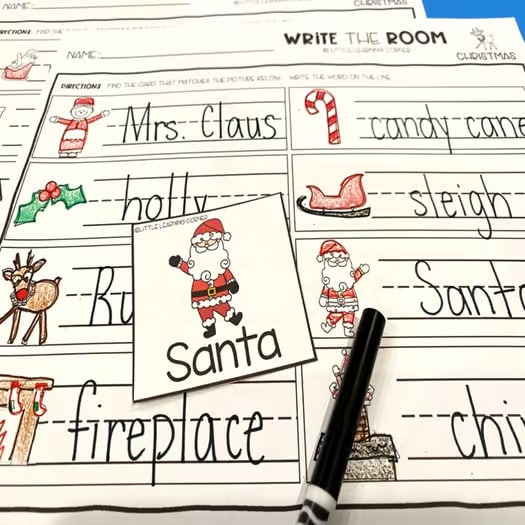 CHRISTMAS
DIRECTIONS: FIND THE
NAME:
WRITE THE ROOM
© LITTLE LEARNING CORNER
CHRISTMAS
DIRECTIONS: FIND THE CARD THAT MATCHES THE PICTURE BELOW. WRITE THE WORD ON THE LINE.
Mrs. Claus
candy cane
holly
sleigh
©LITTLE LEARNING CORNER
Santa
Ru
Santa
fireplace
chi